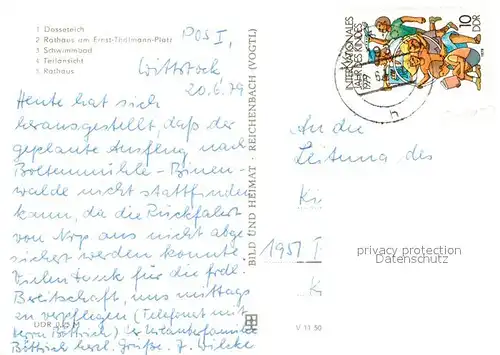 1 Dosseteich
2 Rathaus am Ernst-Thälmann-Platz
3 Schwimmbad
4 Teilansicht
5 Rathaus
POS I,
Wittstock
20.6.79
Heute hat sich
herausgestellt, daß der
geplante Ausflug nach
Boltenmühle - Binen-
walde nicht stattfinden
kann, da die Rückfahrt
von Nrp aus nicht abge
sichert werden konnte
Vielen Dank für die frdl.
Bereitschaft, uns mittags
zu verpflegen (Telefonat mit
Herrn Böttrich)
Böttrich herzl. Grüße. J. Wilcke
BILD UND HEIMAT · REICHENBACH (VOGTL)
INTERNATIONALES
JAHR DES KINDES
1979
10
DDR
An die
Leitung des
Ki
1951 I
privacy protection
Datenschutz
Ki
V 11 50